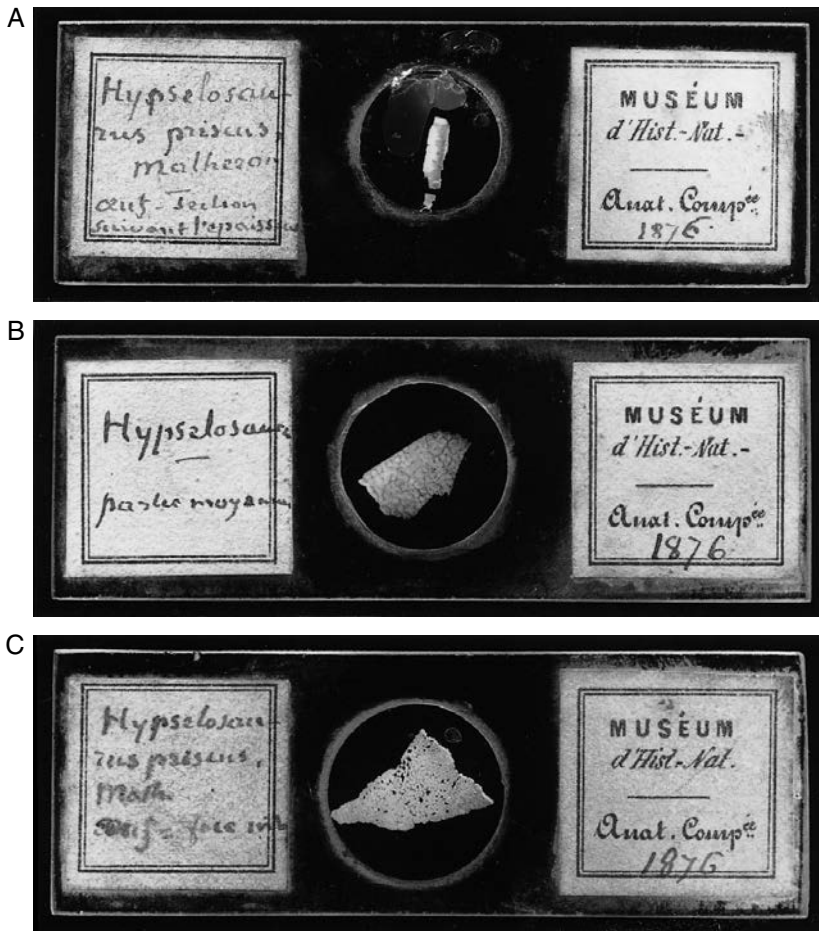 A
Hypselosau-
rus priscus,
Matheron
œuf - Section
suivant l'épaisseur
MUSÉUM
d'Hist.-Nat.-
Anat. Compée.
1876
B
Hypselosaure
partie moyenne
MUSÉUM
d'Hist.-Nat.-
Anat. Compée.
1876
C
Hypselosau-
rus priscus,
Math.
œuf - face int
MUSÉUM
d'Hist.-Nat.
Anat. Compée.
1876